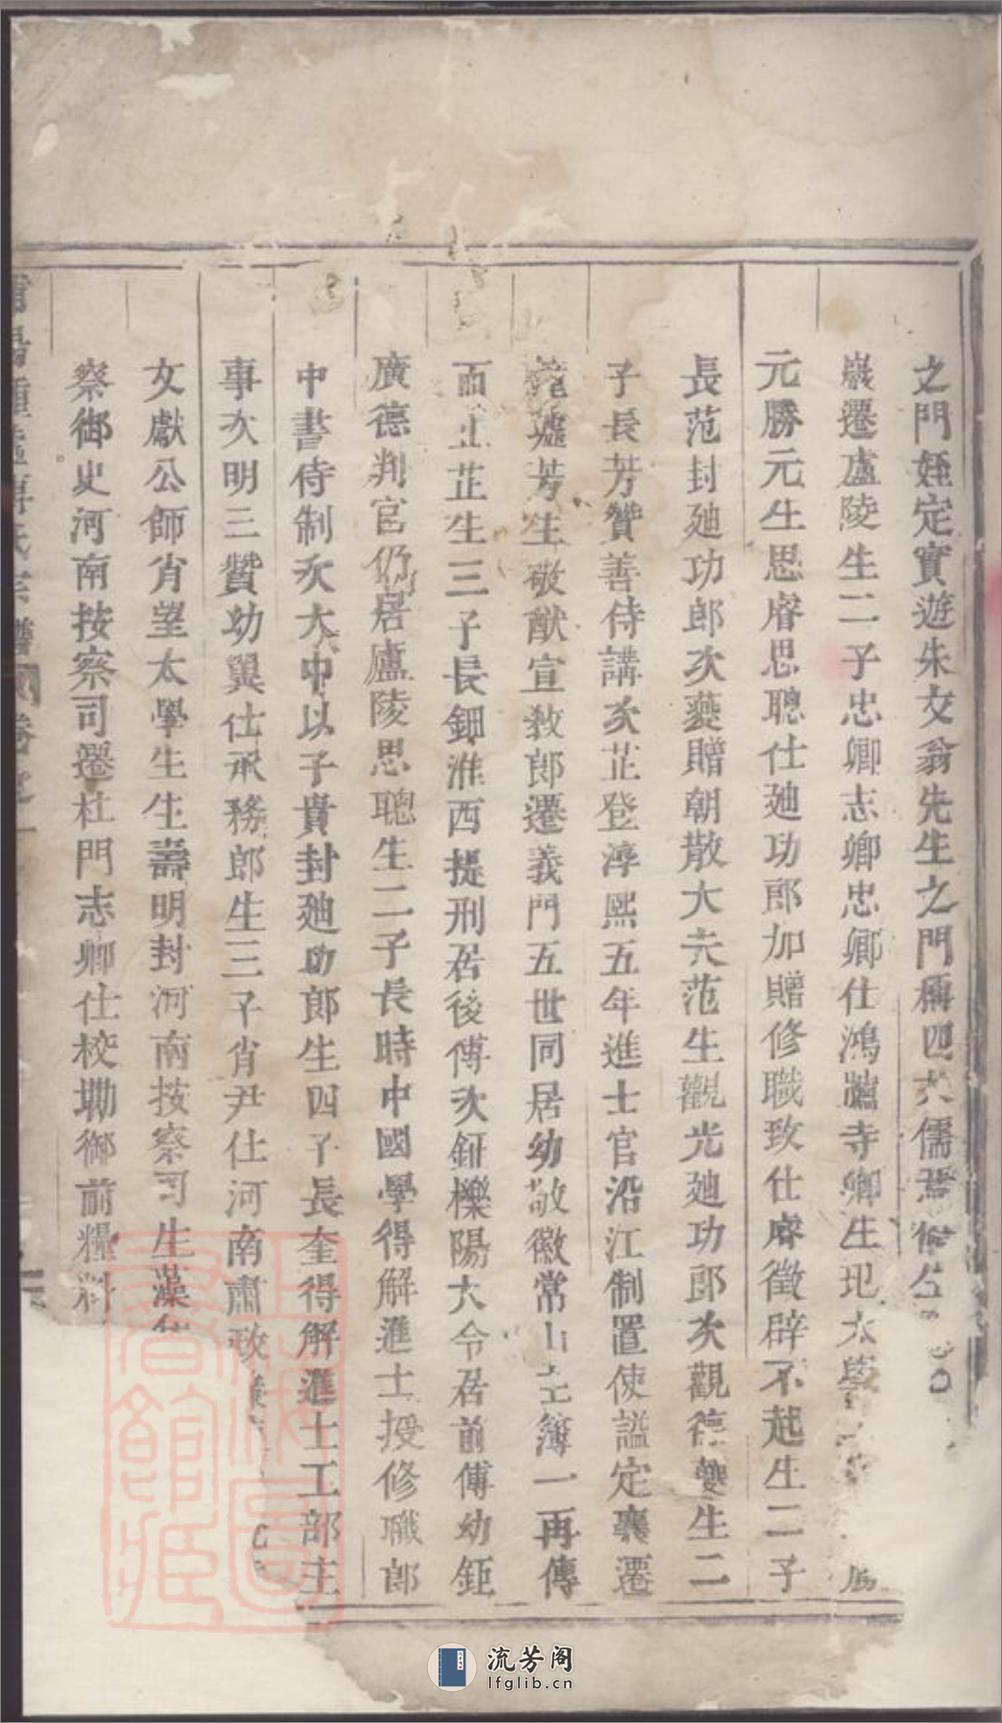 之門姪定實遊朱文翁先生之門稱四大儒
巖遷廬陵生二子忠卿志卿忠卿仕鴻臚寺卿生玘太學
元勝元生思睿思聰仕廸功郎加贈修職致仕睿徵辟不起生二子
長范封廸功郎次夔贈朝散大夫范生觀光廸功郎次觀德夔生二
子長芳贊善侍講次芷登淳熙五年進士官沿江制置使謚定襄遷
墟芳生敬猷宣教郎遷義門五世同居幼敬徽常山主簿一再傳
而止芷生三子長鈿淮西提刑居後傅次鉦櫟陽大令居前傅幼鉅
廣德判官仍居廬陵思聰生二子長時中國學得解進士授修職郎
中書侍制次大中以子貴封廸功郎生四子長奎得解進士工部主
事次明三贊幼翼仕承務郎生三子肖尹仕河南肅政
文獻公師肖望太學生生壽明封河南按察司生藻
察御史河南按察司遷杜門志卿仕校勘御前糧料
氏宗譜 卷之一
上海圖書館藏
流芳阁
lfglib.cn